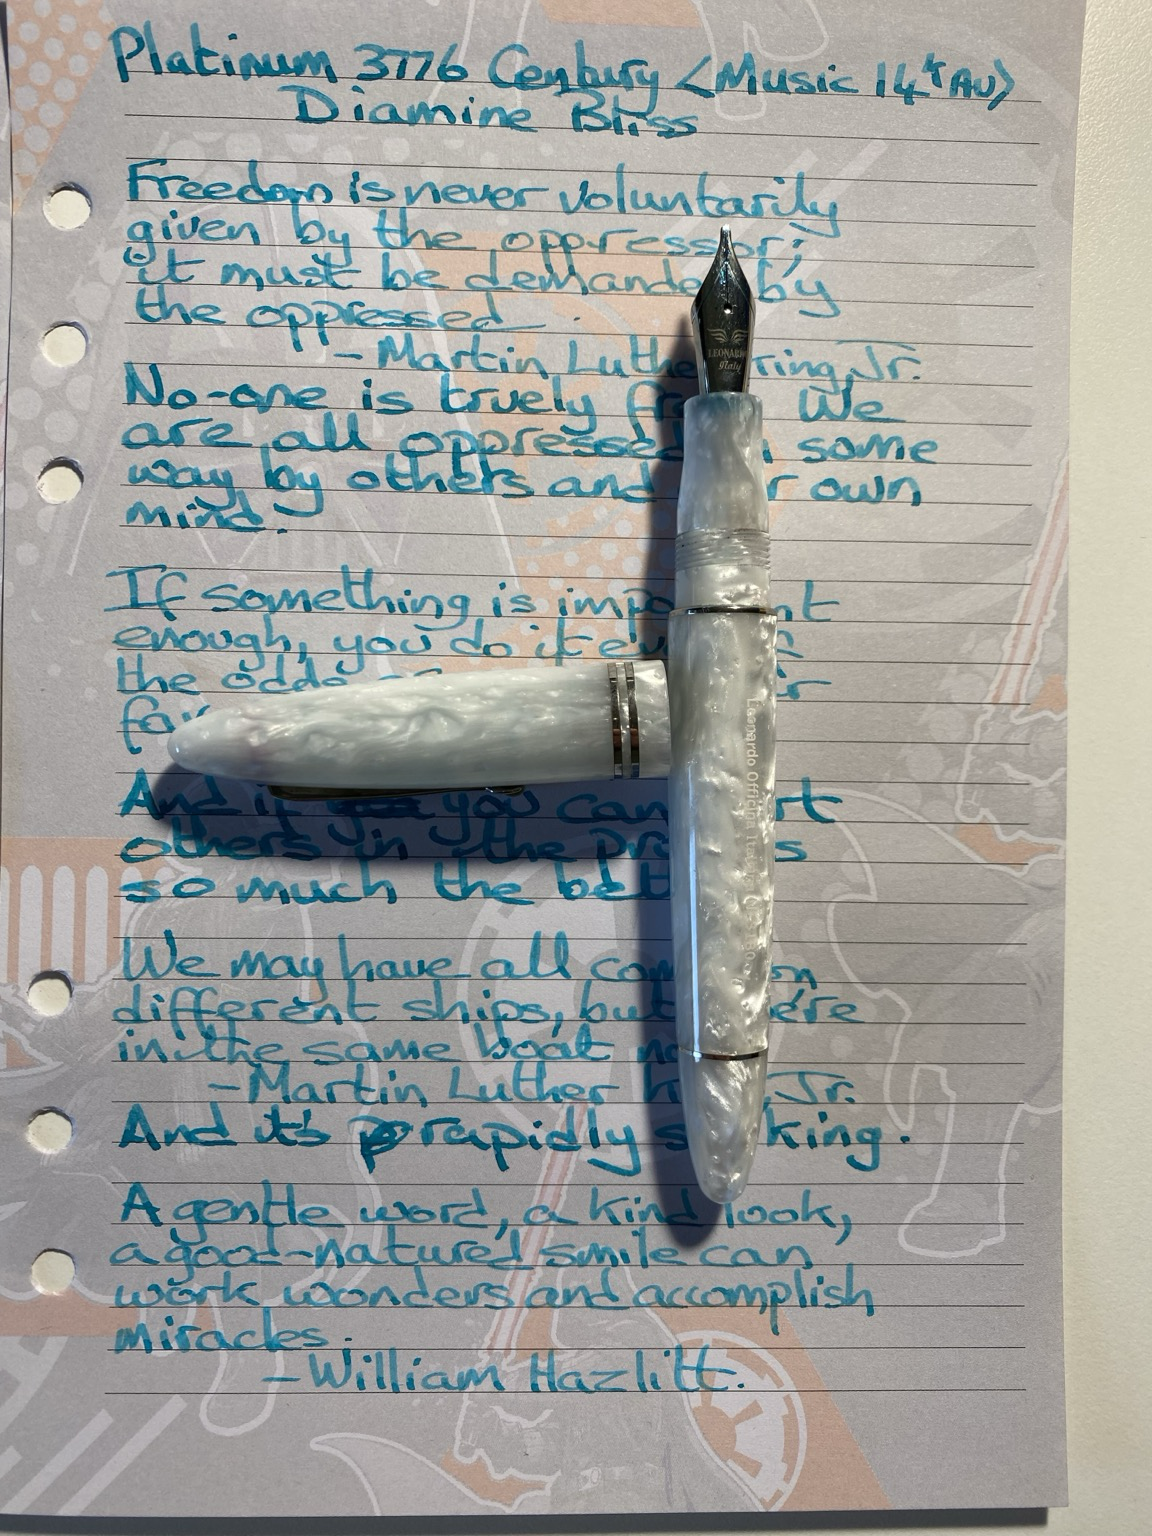 Platinum 3776 Century <Music 14k AU>
Diamine Bliss
Freedom is never voluntarily
given by the oppressor;
it must be demanded by
the oppressed.
- Martin Luther King, Jr.
No-one is truely We
are all oppressed some
way by others and own
mind.
If something is important
enough, you do it
the odds
And if you can
others in the
so much the
We may have all come on
different ships, but
in the same boat
- Martin Luther Jr.
And it's rapidly sinking.
A gentle word, a kind look,
a good-natured smile can
work wonders and accomplish
miracles.
- William Hazlitt.
LEONARDO
Italy
Leonardo Officina Italiana